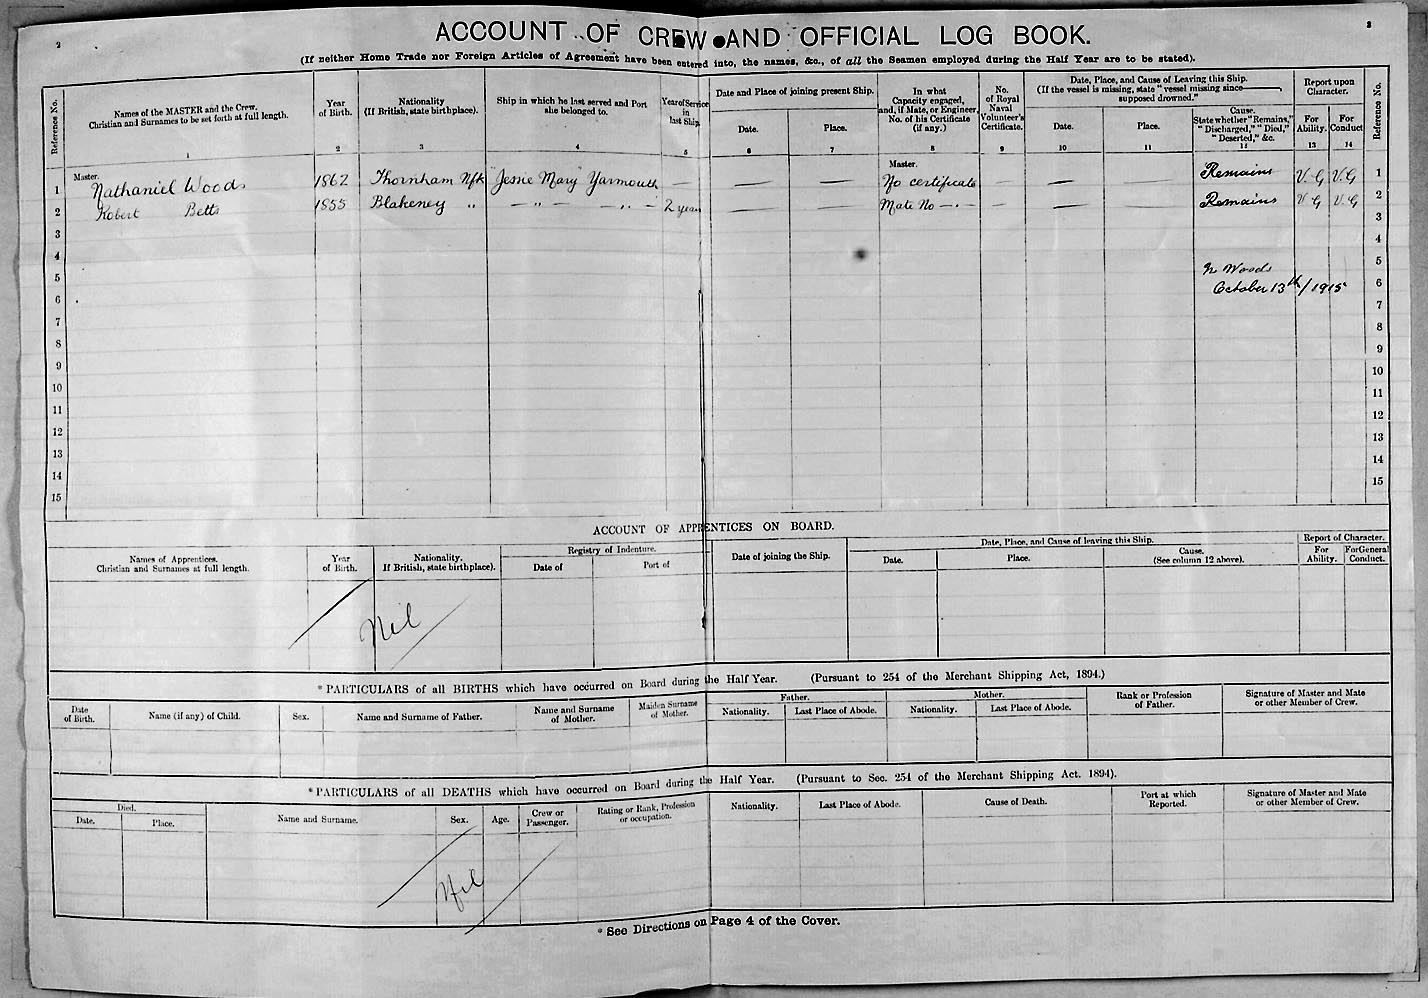 2
3
ACCOUNT OF CREW AND OFFICIAL LOG BOOK.
(If neither Home Trade nor Foreign Articles of Agreement have been entered into, the names, &c., of all the Seamen employed during the Half Year are to be stated).
Reference No.
Names of the MASTER and the Crew.
Christian and Surnames to be set forth at full length.
1
Year
of Birth.
2
Nationality
(If British, state birthplace).
3
Ship in which he last served and Port
she belonged to.
4
Year of Service
in
last Ship.
5
Date and Place of joining present Ship.
Date.
6
Place.
7
In what
Capacity engaged,
and, if Mate, or Engineer,
No. of his Certificate
(if any.)
8
No.
of Royal
Naval
Volunteer's
Certificate.
9
Date, Place, and Cause of Leaving this Ship.
(If the vessel is missing, state "vessel missing since———,
supposed drowned."
Date.
10
Place.
11
Cause.
State whether "Remains,"
"Discharged," "Died,"
"Deserted," &c.
12
Report upon
Character.
For
Ability.
13
For
Conduct
14
Reference No.
Master.
Master.
1 Nathaniel Woods 1862 Thornham Nfk "Jessie Mary" Yarmouth — — — No certificate — — — Remains V.G V.G 1
2 Robert Betts 1855 Blakeney " — " — — " — 2 years — — Mate No — " — — — — Remains V G V.G 2
3 3
4 4
5 5
N Woods
6 6
October 13th/1915
7 7
8 8
9 9
10 10
11 11
12 12
13 13
14 14
15 15
ACCOUNT OF APPRENTICES ON BOARD.
Names of Apprentices.
Christian and Surnames at full length.
Year
of Birth.
Nationality.
If British, state birthplace).
Registry of Indenture.
Date of
Port of
Date of joining the Ship.
Date, Place, and Cause of leaving this Ship.
Date.
Place.
Cause.
(See column 12 above).
Report of Character.
For
Ability.
For General
Conduct.
Nil
*PARTICULARS of all BIRTHS which have occurred on Board during the Half Year. (Pursuant to 254 of the Merchant Shipping Act, 1894.)
Date
of Birth.
Name (if any) of Child.
Sex.
Name and Surname of Father.
Name and Surname
of Mother.
Maiden Surname
of Mother.
Father.
Nationality.
Last Place of Abode.
Mother.
Nationality.
Last Place of Abode.
Rank or Profession
of Father.
Signature of Master and Mate
or other Member of Crew.
*PARTICULARS of all DEATHS which have occurred on Board during the Half Year. (Pursuant to Sec. 254 of the Merchant Shipping Act. 1894).
Died.
Date.
Place.
Name and Surname.
Sex.
Age.
Crew or
Passenger.
Rating or Rank, Profession
or occupation.
Nationality.
Last Place of Abode.
Cause of Death.
Port at which
Reported.
Signature of Master and Mate
or other Member of Crew.
Nil
*See Directions on Page 4 of the Cover.